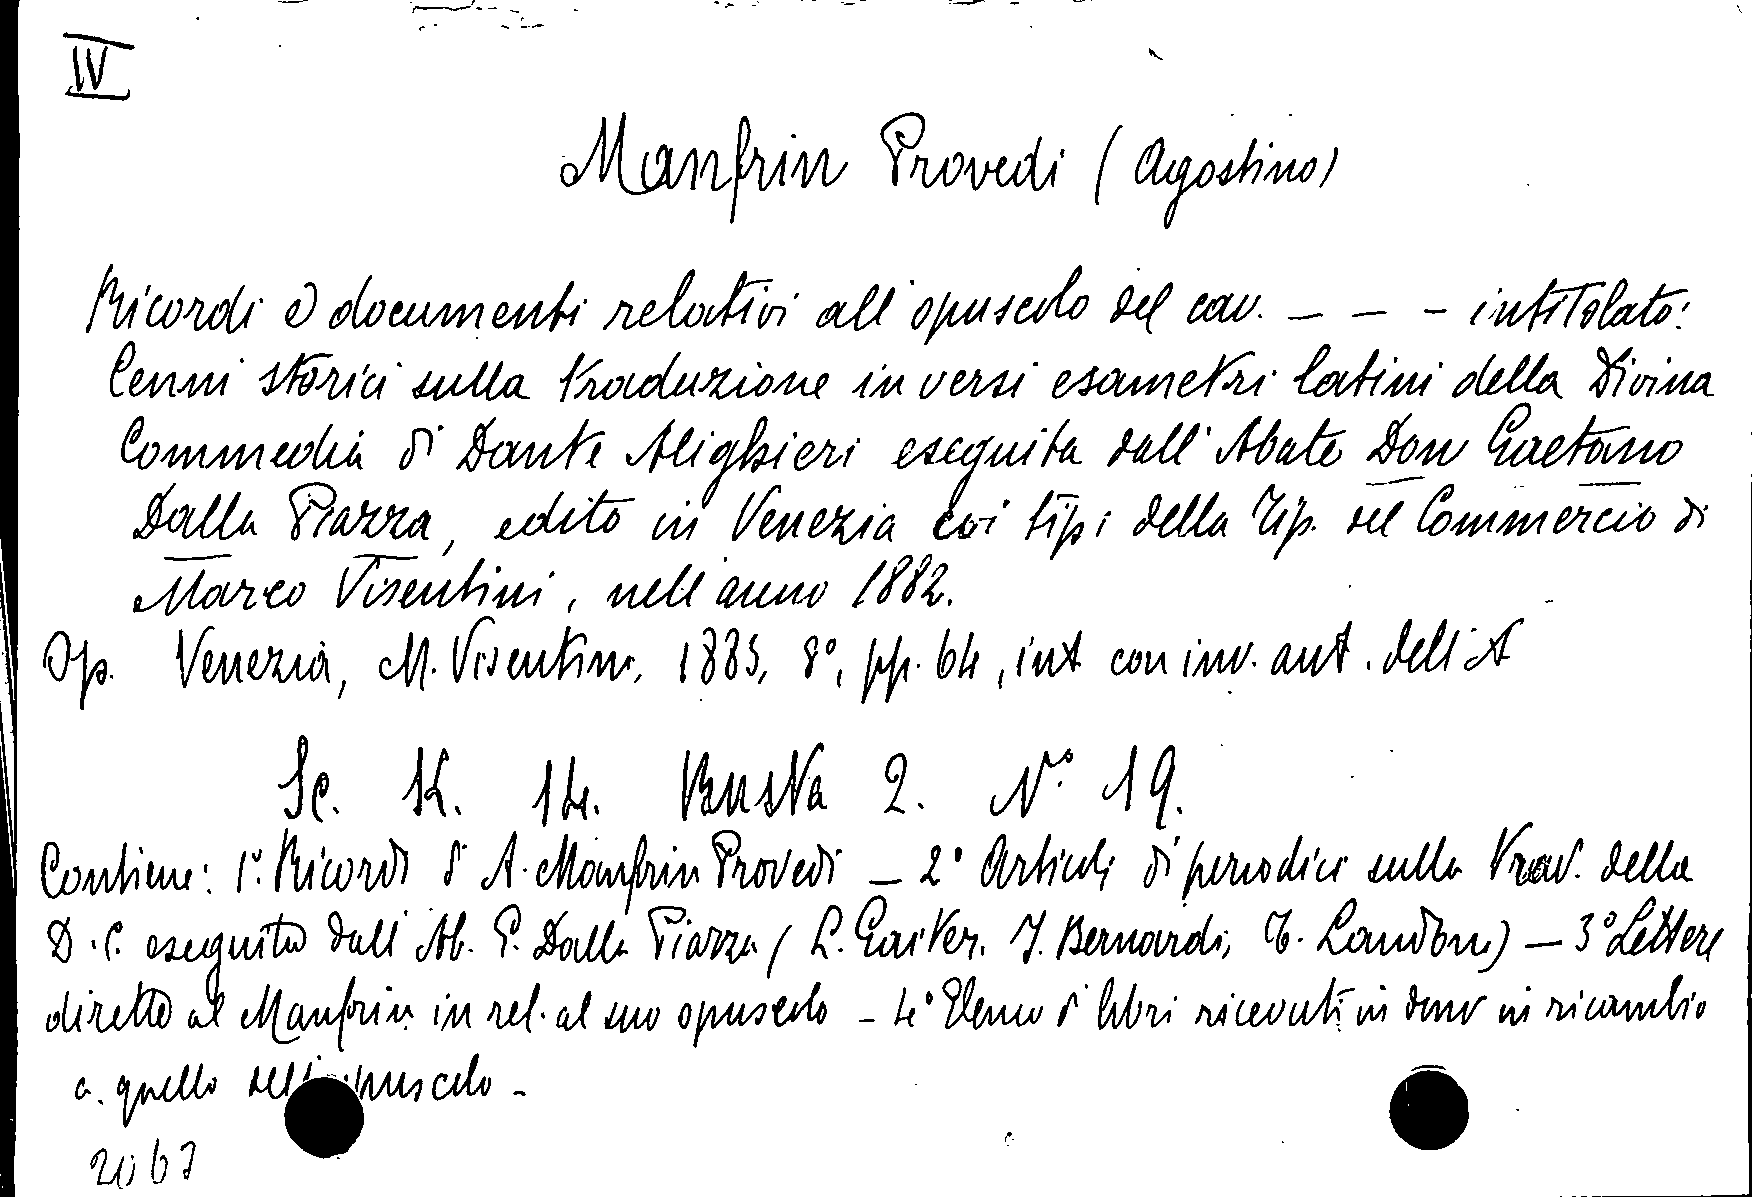 IV
Manfrin Provedi (Agostino)
Ricordi e documenti relativi all'opuscolo del cav. – – – intitolato:
Cenni storici sulla traduzione in versi esametri latini della Divina
Commedia di Dante Alighieri eseguita dall'Abate Don Gaetano
Dalla Piazza, edito in Venezia coi tipi della Tip. del Commercio di
Marco Visentini, nell'anno 1882.
Op. Venezia, M. Visentini, 1883, 8°, pp. 64, int con inv. aut. dell'A
Sc. K. 14. Busta 2. N° 19.
Contiene: 1°. Ricordi di A. Manfrin Provedi – 2° Articoli di periodici sulla trad. della
D. C. eseguita dall'Ab. G. Dalla Piazza ( L. Gaiter. J. Bernardi, T. Landoni) – 3° Lettere
dirette al Manfrin in rel. al suo opuscolo – 4° Elenco di libri ricevuti in dono in ricambio
a quello dell'opuscolo –